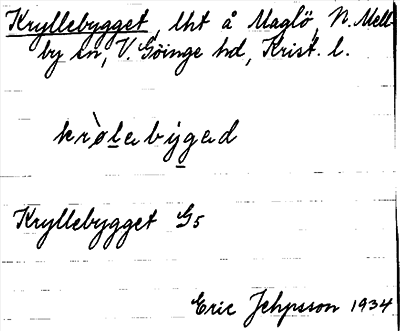 Kryllebygget, lht å Maglö, N. Mell-
by sn, V. Göinge hd, Krist. l.
kròlabýgad
Kryllebygget G5
Eric Jehpsson 1934